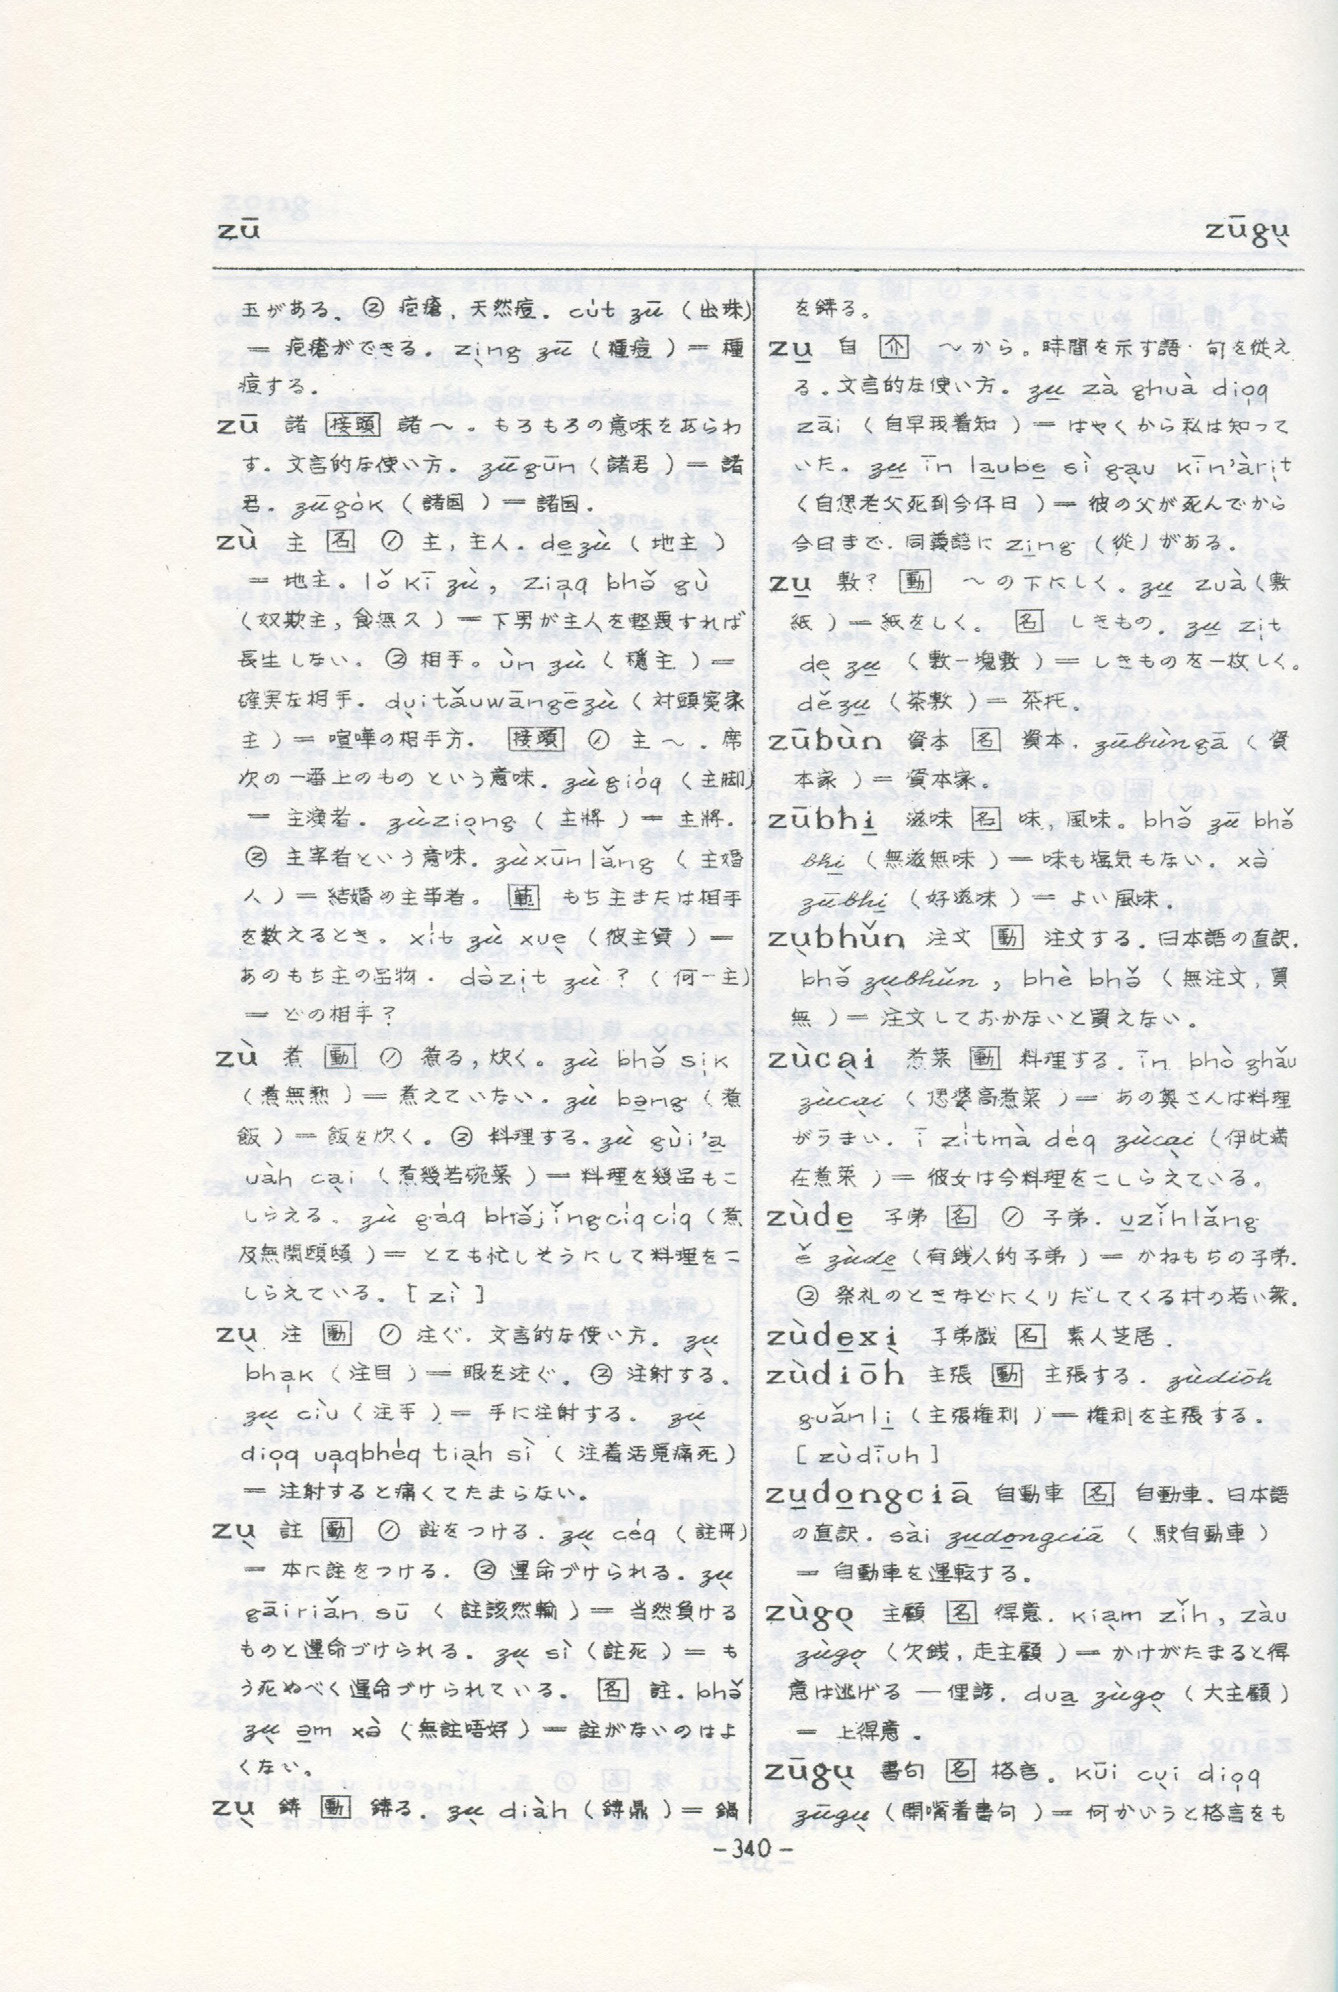 zū
zūgụ̀
玉がある。② 疱瘡，天然痘。cu̍t zū（出珠）
＝ 疱瘡ができる。zi̖ng zū（種痘）＝ 種
痘する。
zū 諸 [接頭] 諸〜。もろもろの意味をあらわ
す。文言的な使い方。zūgūn（諸君）＝ 諸
君。zūgo̍k（諸国）＝ 諸国。
zù 主 [名] ① 主，主人。de̱zù（地主）
＝ 地主。lǒ kī zù, zia̖q bhə̌ gù
（奴欺主，食無久）＝ 下男が主人を軽蔑すれば
長生しない。② 相手。ùn zù（穏主）＝
確実な相手。du̖itǎuwāngēzù（対頭寃家
主）＝ 喧嘩の相手方。[接頭] ① 主〜。席
次の一番上のものという意味。zùgio̍q（主脚）
＝ 主演者。zùzio̖ng（主將）＝ 主將。
② 主宰者という意味。zùxūnlǎng（主婚
人）＝ 結婚の主宰者。[範] もち主または相手
を数えるとき。xi̍t zù xue̖（彼主貨）＝
あのもち主の品物。də̀zi̖t zù？（何一主）
＝ どの相手？
zù 煮 [動] ① 煮る，炊く。zù bhə̌ si̖k
（煮無熟）＝ 煮えていない。zù bə̱ng（煮
飯）＝ 飯を炊く。② 料理する。zù gùi'a̱
uàh ca̖i（煮幾若碗菜）＝ 料理を幾品もこ
しらえる。zù ga̍q bhə̌jǐngci̍qci̍q（煮
及無閑頤頤）＝ とても忙しそうにして料理をこ
しらえている。[ zì ]
zu̖ 注 [動] ① 注ぐ。文言的な使い方。zu̖
bha̖k（注目）＝ 眼を注ぐ。② 注射する。
zu̖ ciù（注手）＝ 手に注射する。zu̖
dio̖q ua̖qbhe̍q tia̖h sì（注着活覓痛死）
＝ 注射すると痛くてたまらない。
zu̖ 註 [動] ① 註をつける。zu̖ ce̍q（註冊）
＝ 本に註をつける。② 運命づけられる。zu̖
gāiriǎn sū（註該然輸）＝ 当然負ける
ものと運命づけられる。zu̖ sì（註死）＝ も
う死ぬべく運命づけられている。[名] 註。bhə̌
zu̖ ə̱m xə̀（無註唔好）＝ 註がないのはよ
くない。
zu̖ 鋳 [動] 鋳る。zu̖ diàh（鋳鼎）＝ 鍋
を鋳る。
zu̱ 自 [介] 〜から。時間を示す語・句を従え
る。文言的な使い方。zu̱ zà ghuà dio̖q
zāi（自早我着知）＝ はやくから私は知って
いた。zu̱ īn la̱ube̱ sì ga̖u kīn'àri̖t
（自偲老父死到今仔日）＝ 彼の父が死んでから
今日まで。同義語に zi̱ng（從）がある。
zu̱ 敷？ [動] 〜の下にしく。zu̱ zuà（敷
紙）＝ 紙をしく。[名] しきもの。zu̱ zi̖t
de̖ zu̱（敷一塊敷）＝ しきものを一枚しく。
dězu̱（茶敷）＝ 茶托。
zūbùn 資本 [名] 資本。zūbùngā（資
本家）＝ 資本家。
zūbhi̱ 滋味 [名] 味，風味。bhə̌ zū bhə̌
bhi̱（無滋無味）＝ 味も塩気もない。xə̀
zūbhi̱（好滋味）＝ よい風味。
zu̖bhǔn 注文 [動] 注文する。日本語の直訳。
bhə̌ zu̖bhǔn, bhè bhə̌（無注文，買
無）＝ 注文しておかないと買えない。
zùca̖i 煮菜 [動] 料理する。īn bhò ghǎu
zùca̖i（偲婆高煮菜）＝ あの奥さんは料理
がうまい。ī zi̍tmà de̍q zùca̖i（伊此満
在煮菜）＝ 彼女は今料理をこしらえている。
zùde̱ 子弟 [名] ① 子弟。u̱zǐhlǎng
ě zùde̱（有銭人的子弟）＝ かねもちの子弟。
② 祭礼のときなどにくりだしてくる村の若い衆。
zùde̱xi̖ 子弟戯 [名] 素人芝居。
zùdiōh 主張 [動] 主張する。zùdiōh
guǎnli̱（主張権利）＝ 権利を主張する。
[ zùdīuh ]
zu̱do̱ngciā 自動車 [名] 自動車。日本語
の直訳。sài zu̱do̱ngciā（駛自動車）
＝ 自動車を運転する。
zùgo̖ 主顧 [名] 得意。kia̖m zǐh, zàu
zùgo̖（欠銭，走主顧）＝ かけがたまると得
意は逃げる — 俚諺。dua̱ zùgo̖（大主顧）
＝ 上得意。
zūgu̖ 書句 [名] 格言。kūi cu̖i dio̖q
zūgu̖（開嘴着書句）＝ 何かいうと格言をも
－340－